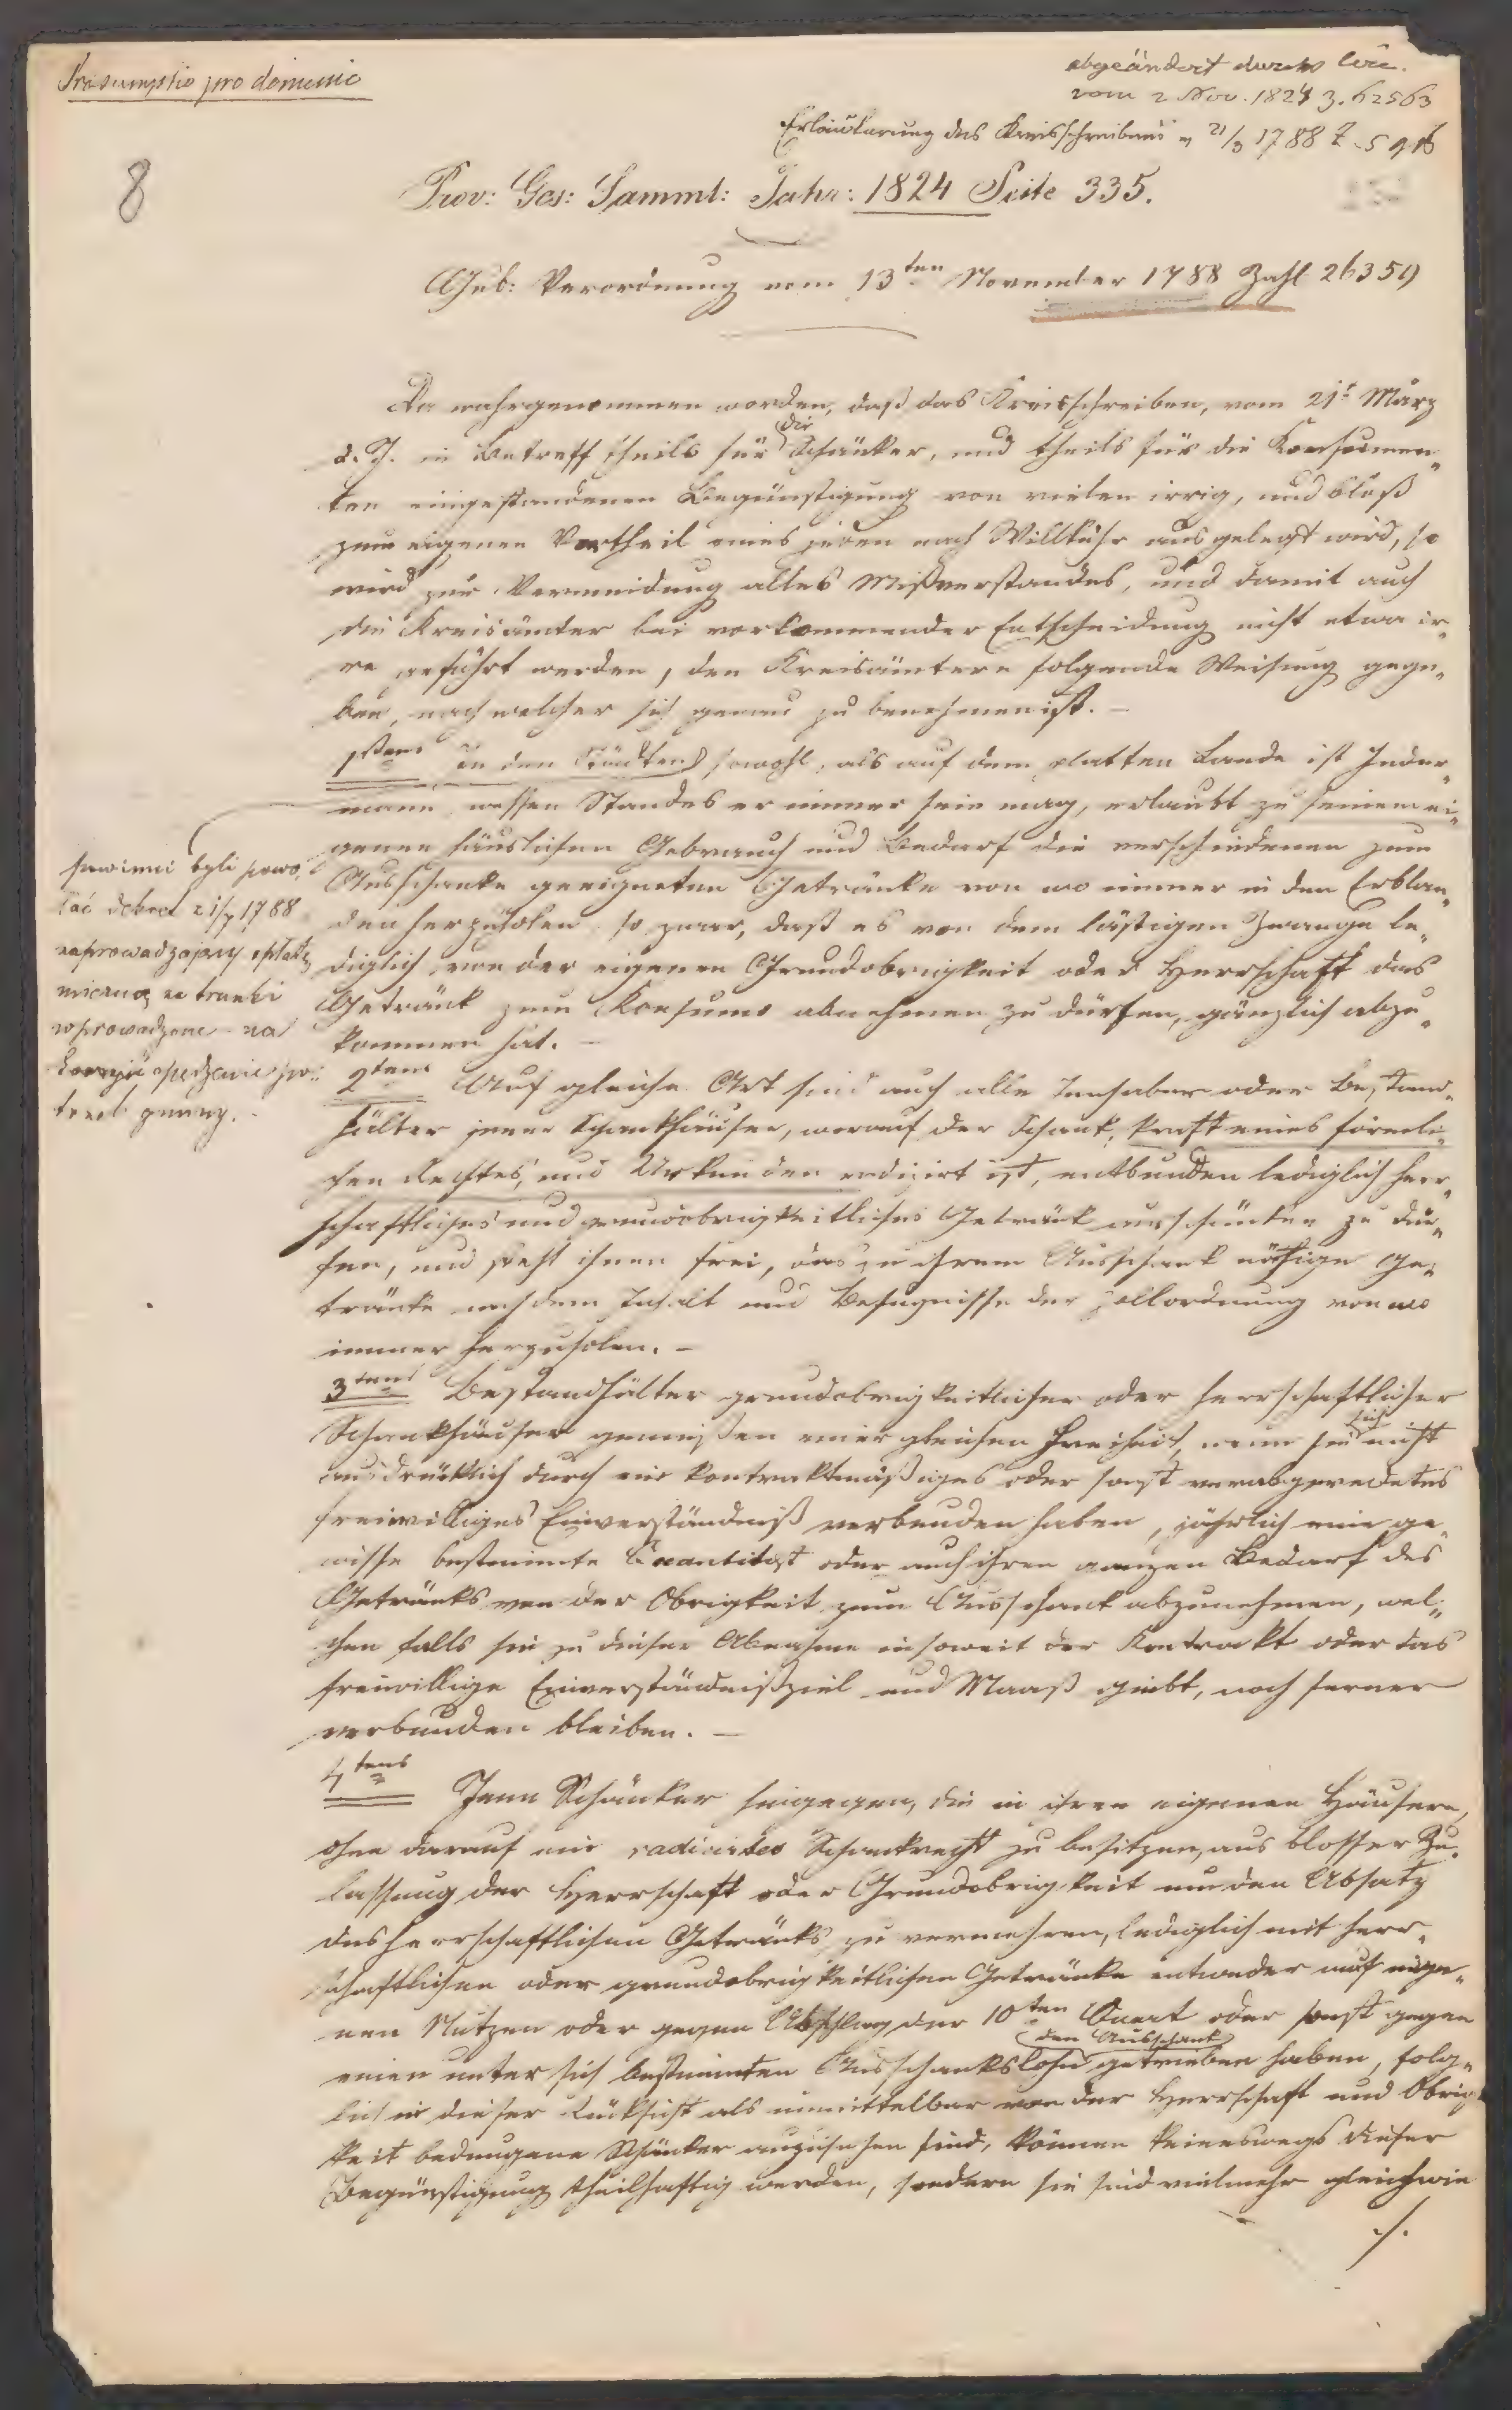 Praesumptio pro domenio
abgeändert durch Circ.
vom 2 Nov. 1824 Z. 62563
Erläuterung des Kreisschreibens v 21/3 1788 Z
8
Prov: Ges: Samml: Jahr: 1824 Seite 335.
Gub: Verordnung vom 13ten November 1788 Zahl 26359
Da wahrgenommen worden, daß das Kreisschreiben, vom 21t März
d. J. in Betreff theils für die Schänker, und theils für die Konsumen„
ten eingestandenen Begünstigung von vielen irrig, und bloß
zum eigenen Vortheil eines jeden nach Willkühr ausgelegt wird, so
wird zur Vermeidung alles Mißverstandes, und damit auch
die Kreisämter bei vorkommender Entscheidung nicht etwa ir„
re geführt werden, den Kreisämtern folgende Weisung gege„
ben, nach welcher sich genau zu benehmen ist. —
1stens In den Städten sowohl, als auf dem platten Lande ist Jeder„
mann, wessen Standes er immer sein mag, erlaubt zu seinem ei„
genen häuslichen Gebrauch und Bedarf die verschiedenen zum
Ausschanke geeigneten Getränke von wo immer in den Erblan„
den herzuholen, so zwar, daß es von dem lästigen Zwange le„
diglich von der eigenen Grundobrigkeit oder Herrschaft das
Getränk zum Konsumo abnehmen zu dürfen, gänzlich abzu„
kommen hat. —
powinni byli powo„
łać dekret 21/3 1788
zaprowadzający opłatę
na trunki
wprowadzone - na
2tens Auf gleiche Art sind auch alle Innhaber oder Bestand„
hälter jener Schankhäuser, worauf der Schank, kraft eines förmli„
chen Rechtes, und Urkunden radizirt ist, entbunden lediglich herr„
schaftliches und grundobrigkeitliches Getränk ausschänken zu dür„
fen, und steht ihnen frei, das zu ihrem Ausschank nöthige Ge„
tränke nach dem Inhalt und Befugnisse der Zollordnung von wo
immer herzuholen. —
3tens Bestandhälter grundobrigkeitlicher oder herrschaftlicher
Schankhäuser genießen einer gleichen Freiheit, wenn sie sich nicht
ausdrücklich durch ein kontraktmäßiges oder sonst verabgeredetes
freiwilliges Einverständniß verbunden haben, jährlich eine ge„
wisse bestimmte Quantität oder auch ihren ganzen Bedarf des
Getränks von der Obrigkeit zum Ausschank abzunehmen, wel„
chen falls sie zu dieser Abnahme insoweit der Kontrakt oder das
freiwillige Einverständniß Ziel und Maaß giebt, noch ferner
verbunden bleiben. —
4tens Jene Schänker hingegen, die in ihren eigenen Häusern,
ohne darauf ein radicirtes Schankrecht zu besitzen, aus blosser Zu„
lassung der Herrschaft oder Grundobrigkeit um den Absatz
des herrschaftlichen Getränks zu vermehren, lediglich mit herr„
schaftlichen oder grundobrigkeitlichen Getränke entweder auf eige„
nen Nutzen oder gegen Abschlag der 10ten Quart oder sonst gegen
einen unter sich bestimmten Ausschankslohn den Ausschank getrieben haben, folg„
lich in dieser Rücksicht als unmittelbar von der Herrschaft und Obrig„
keit bedungene Schänker anzusehen sind, können keineswegs dieser
Begünstigung theilhaftig werden, sondern sie sind vielmehr gleichwie
./.